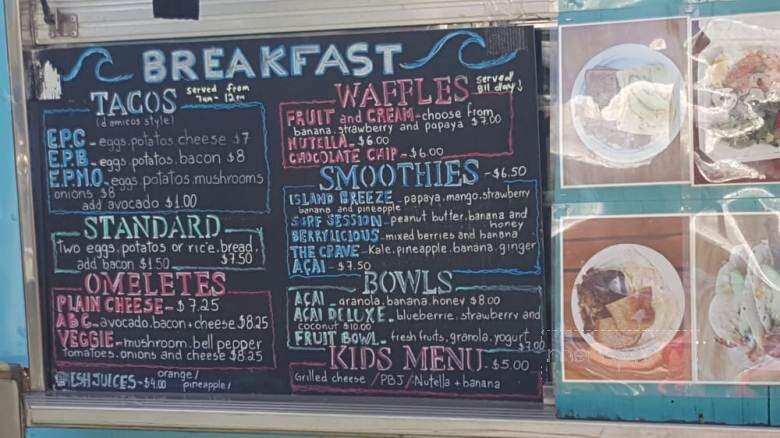 BREAKFAST
TACOS
served from
7am - 12pm
(d'amicos style)
E.P.C - eggs.potatos cheese $7
E.P.B - eggs.potatos.bacon $8
E.P.M.O - eggs.potatos.mushrooms
onions $8
add avocado $1.00
STANDARD
Two eggs.potatos or rice.bread.
$7.50
add bacon $1.50
OMELETES
PLAIN CHEESE - $7.25
ABC - avocado.bacon + cheese $8.25
VEGGIE - mushroom.bell pepper
Tomatoes.onions and cheese $8.25
ESH JUICES - $4.00
orange/
pineapple/
WAFFLES
served
all day
FRUIT and CREAM - choose from
banana.strawberry and papaya $7.00
NUTELLA - $6.00
CHOCOLATE CHIP - $6.00
SMOOTHIES - $6.50
ISLAND BREEZE - papaya.mango.strawberry
banana and pineapple
SURF SESSION - peanut butter.banana and
honey
BERRYLICIOUS - mixed berries and banana
THE CRAVE - Kale.pineapple.banana.ginger
AÇAI - $7.50
BOWLS
AÇAI - granola.banana.honey $8.00
AÇAI DELUXE - blueberrie.strawberry and
coconut $10.00
FRUIT BOWL - fresh fruits.granola.yogurt
$7.00
KIDS MENU - $5.00
Grilled cheese / PBJ / Nutella + banana